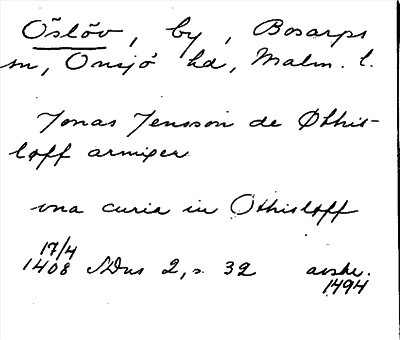 Öslöv, by, Bosarps
sn, Onsjö hd, Malm. l.
Jonas Jensson de Øthis-
loff armiger
vna curia in Othisloff
17/4
1408 SDns 2, s. 32 avskr.
1494